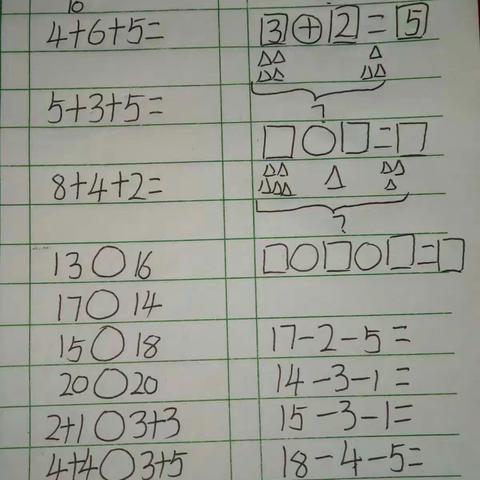 10
4+6+5=
5+3+5=
8+4+2=
13○16
17○14
15○18
20○20
2+1○3+3
4+4○3+5
3⊕2=5
?
□○□=□
?
□○□○□=□
17-2-5=
14-3-1=
15-3-1=
18-4-5=